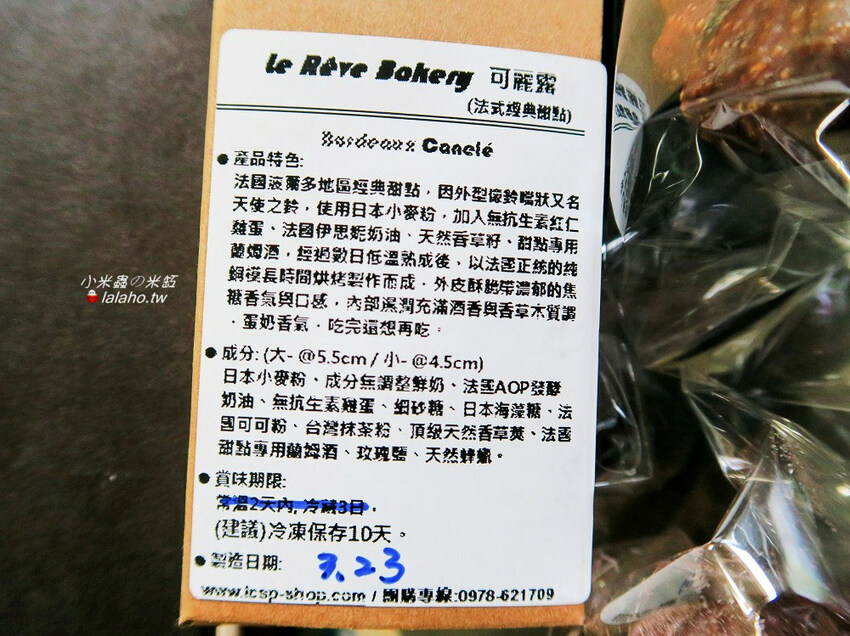 Le Rêve Bakery 可麗露
(法式經典甜點)
Bordeaux Canelé
●產品特色:
法國波爾多地區經典甜點，因外型像鈴噹狀又名
天使之鈴，使用日本小麥粉，加入無抗生素紅仁
雞蛋、法國伊思妮奶油、天然香草籽、甜點專用
蘭姆酒，經過數日低溫熟成後、以法國正統的純
銅模長時間烘烤製作而成，外皮酥脆帶濃郁的焦
糖香氣與口感，內部濕潤充滿酒香與香草木質調
，蛋奶香氣，吃完還想再吃。
●成分: (大- @5.5cm / 小- @4.5cm)
日本小麥粉、成分無調整鮮奶、法國AOP發酵
奶油、無抗生素雞蛋、細砂糖、日本海藻糖、法
國可可粉、台灣抹茶粉、頂級天然香草莢、法國
甜點專用蘭姆酒、玫瑰鹽、天然蜂蠟。
●賞味期限:
常溫2天內, 冷藏3日，
(建議)冷凍保存10天。
●製造日期: 3.23
www.icsp-shop.com / 團購專線:0978-621709
小米蟲の米缸
lalaho.tw